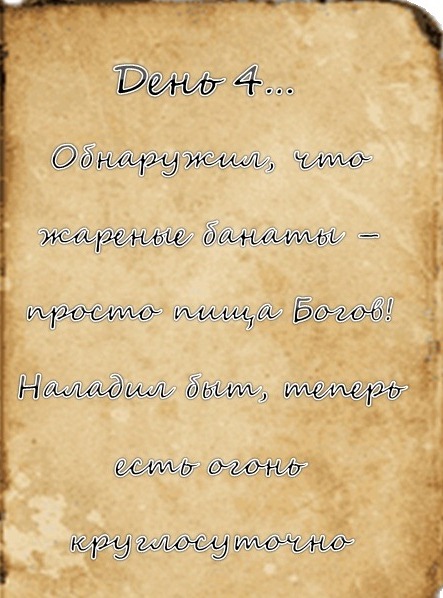 День 4...
Обнаружил, что
жареные банаты –
просто пища Богов!
Наладил быт, теперь
есть огонь
круглосуточно